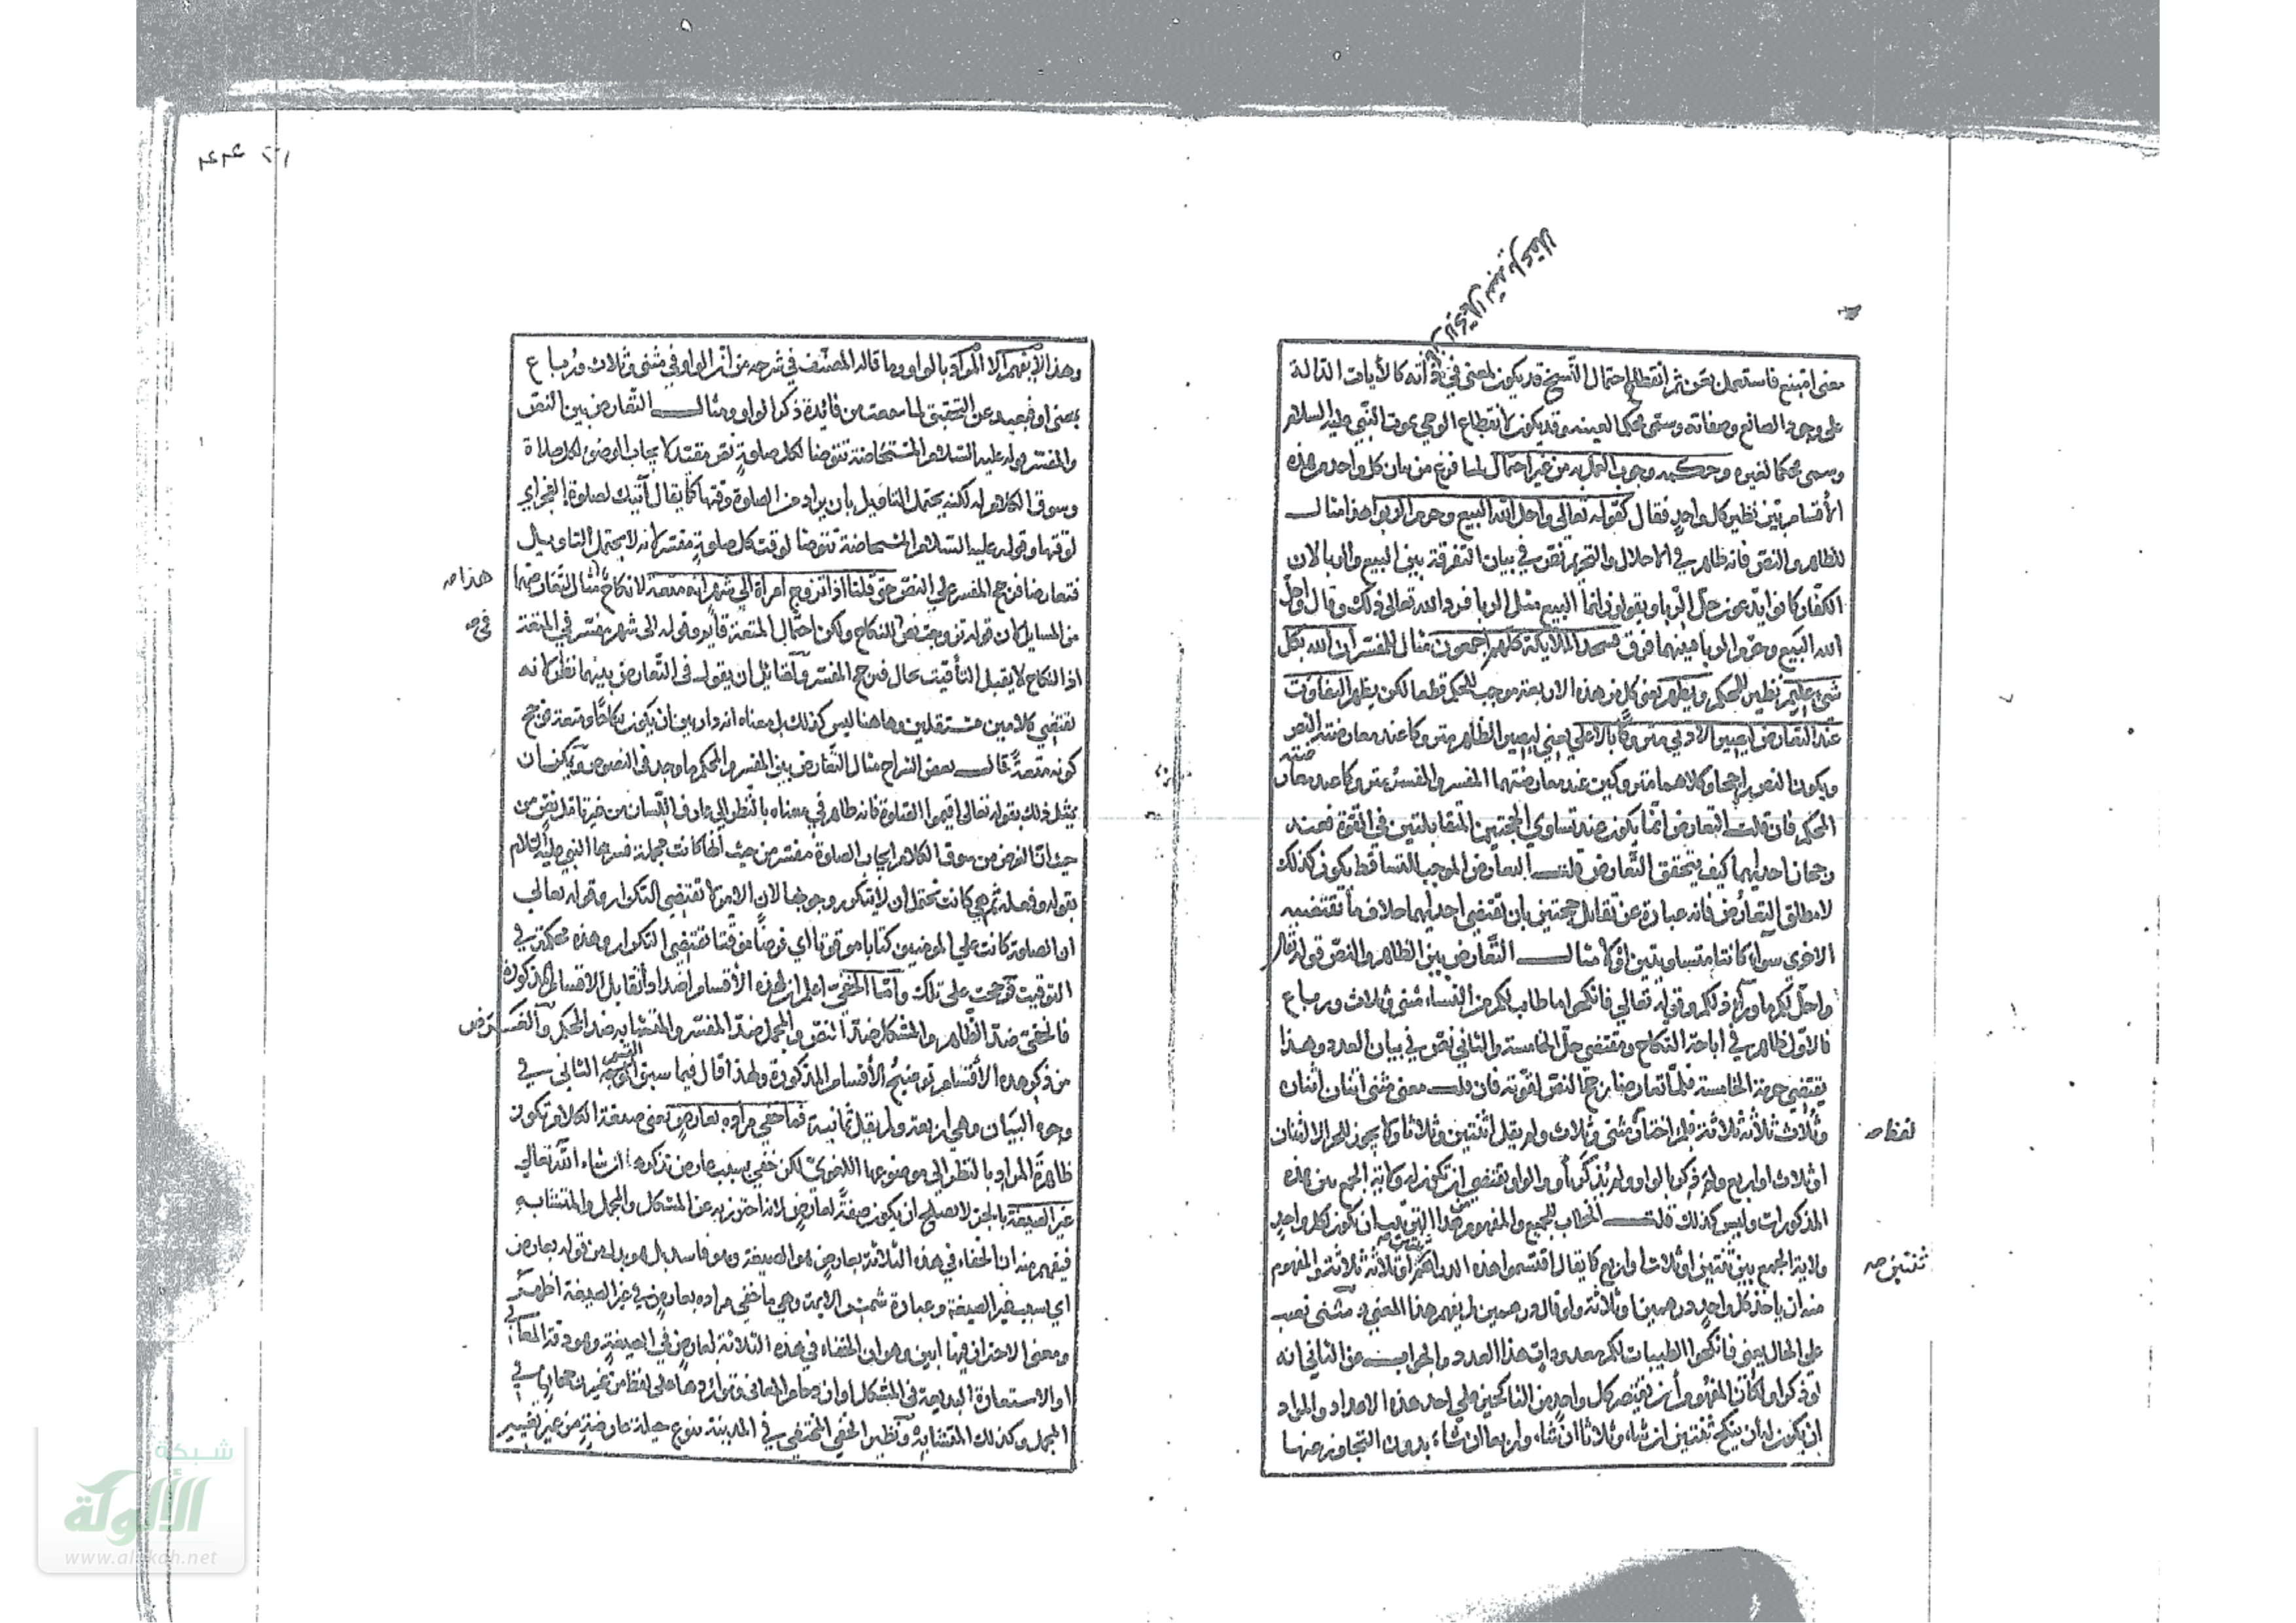 معنى امتنع فاستعمل بعن ثم انقطاع احتمال النسخ قد يكون لمعنى في ذاته كالأيات الدالة
على وجود الصانع وصفاته وسمى محكما لعينه وقد يكون لانقطاع الوحي بموت النبي عليه السلام
ويسمى محكما لغيره وحكمه وجوب العمل به من غير احتمال لما فرغ من بيان كل واحد من هذه
الأقسام بين نظير كل واحد فقال كقوله تعالى واحل الله البيع وحرم الربوا هذا مثال
للظاهر والنص فانه ظاهر في الاحلال والتحريم نص في بيان التفرقة بين البيع والربا لان
الكفار كانوا يدعون حل الربا ويقولون انما البيع مثل الربا فرد الله تعالى ذلك وقال واحل
الله البيع وحرم الربا فبينهما فرق فسجد الملائكة كلهم اجمعون مثال للمفسر ان الله بكل
شيء عليم نظير للمحكم ويظهر يعني كل من هذه الاربعة موجب للحكم قطعا لكن يظهر التفاوت
عند التعارض ليصير الادنى متروكا بالاعلى يعني ليصير الظاهر متروكا عند معارضة النص
ويكون النص راجحا وكلاهما متروكين عند معارضتهما المفسر والمفسر متروكا عند معارضته
المحكم فان قلت التعارض انما يكون عند تساوي الحجتين المتقابلتين في القوة فعند
رجحان احديهما كيف يتحقق التعارض قلت التعارض الموجب للتساقط يكون كذلك
لا مطلق التعارض فانه عبارة عن تقابل حجتين بان تقتضي احديهما خلاف ما تقتضيه
الاخرى سواء كانتا متساويتين او لا مثال التعارض بين الظاهر والنص قوله تعالى
واحل لكم ما وراء ذلكم وقوله تعالى فانكحوا ما طاب لكم من النساء مثنى وثلاث ورباع
فالاول ظاهر في اباحة النكاح ومقتضي حل الخامسة والثاني نص في بيان العدد وهذا
يقتضي حرمة الخامسة فلما تعارضا رجح النص لقوته فان قلت معنى مثنى اثنان اثنان
وثلاث ثلاثة ثلاثة فلم اختار مثنى وثلاث ولم يقل اثنتين وثلاثا ولا يجوز للحر الا اثنتان
لفظ صه
او ثلاث او اربع ولم ذكر الواو ولم يذكر او والواو تقتضي ان تكون له ولاية الجمع بين هذه
المذكورات وليس كذلك قلت الخطاب للجميع والمفهوم من هذا الترتيب ان يكون لكل واحد
ولاية الجمع بين ثنتين او ثلاث او اربع كما يقال اقتسموا هذه الدراهم ثلاثة ثلاثة والمفهوم
ثنتين صه
منه ان ياخذ كل واحد درهمين او ثلاثة ولو قال درهمين لم يفهم هذا المعنى و مثنى نصب
على الحال يعني فانكحوا الطيبات لكم معدودات هذا العدد والجواب عن الثاني انه
لو ذكر او لكان المفهوم أن يقتصر كل واحد من الناكحين على احد هذه الاعداد والمراد
ان يكون له ان ينكح ثنتين ان شاء وثلاثا ان شاء واربعا ان شاء بدون التجاوز عنها
وهذا لا يفهم الا بالواو وما قاله المصنف في شرحه من ان الواو في مثنى وثلاث ورباع
بمعنى او فبعيد عن التحقيق لما سمعت من فائدة ذكر الواو ومثال التعارض بين النص
والمفسر قوله عليه السلام المستحاضة تتوضا لكل صلوة نص مقتض لايجاب الوضوء لكل صلاة
وسوق الكلام له لكنه يحتمل التاويل بان يراد من الصلوة وقتها كما يقال آتيك لصلوة الفجر اي
لوقتها وقوله عليه السلام المستحاضة تتوضا لوقت كل صلوة مفسر لانه لا يحتمل التاويل
فتعارضا فرجح المفسر على النص حتى قلنا اذا تزوج امراة الى شهر انه متعة لا نكاح مثال تعارضهما
هذا صه
من المسايل كان قوله تزوجت نص للنكاح ولكن احتمال المتعة قايم وقوله الى شهر مفسر في المتعة
في صه
اذ النكاح لا يقبل التأقيت بحال فرجح المفسر ولقائل ان يقول في التعارض بينهما نظر لانه
يقتضي كلامين مستقلين وهاهنا ليس كذلك بل معناه انه دار بين ان يكون نكاحا ومتعة فرجح
كونه متعة قال بعض الشراح مثال التعارض بين المفسر والمحكم ما وجد في النصوص ويمكن ان
يمثل ذلك بقوله تعالى اقيموا الصلوة فانه ظاهر في معناه بالنظر الى عارف اللسان من غير تامل نص من
حيث ان الغرض من سوق الكلام ايجاب الصلوة مفسر من حيث انها كانت مجملة فسرها النبي عليه السلام
بقوله وفعله ثم هي كانت تحتمل ان لا يتكرر وجوبها لان الامر لا تقتضي التكرار وقوله تعالى
ان الصلوة كانت على المومنين كتابا موقوتا اي فرضا موقتا تقتضي التكرار وهذه محكمة في
التوقيت فرجحت على تلك واما الخفي اعلم ان لهذه الأقسام اضدادا تقابل الاقسام المذكورة
فالخفي ضد الظاهر والمشكل ضد النص والمجمل ضد المفسر والمتشابه ضد المحكم والغرض
من ذكر هذه الأقسام توضيح الأقسام المذكورة ولهذا قال فيما سبق القسم الثاني في
وجوه البيان وهي اربعة ولم يقل ثمانية فما خفي مراده بعارض يعني صيغة الكلام تكون
ظاهرة المراد بالنظر الى موضوعها اللغوي لكن خفي بسبب عارض نذكره ان شاء الله تعالى
غير الصيغة بالجر لا يصلح ان يكون صفة لعارض لانه احترز به عن المشكل والمجمل والمتشابه
فيفهم منه ان الخفاء في هذه الثلاثة بعارض هو الصيغة وهو فاسد بل هو بدل من قوله بعارض
اي بسبب غير الصيغة وعبارة شمس الايمة وهي ما خفي مراده بعارض في غير الصيغة اظهر
ومعنى الاحتراز فيها ابين وهو ان الخفاء في هذه الثلاثة لعارض في الصيغة وهو دقة المعاني
او الاستعارة البديعة في المشكل او ازدحام المعاني وتواردها على لفظ من غير رجحان في
المجمل وكذلك المتشابه ونظير الخفي المختفي في المدينة بنوع حيلة عارضة من غير تغيير
شبكة
الألوكة
www.alukah.net